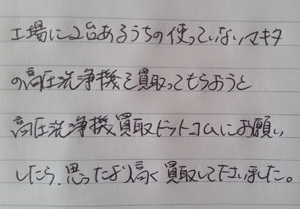 工場に2台あるうちの使っていないマキタ
の高圧洗浄機を買取ってもらおうと
高圧洗浄機買取ドットコムにお願い
したら、思ったより高く買取して下さいました。